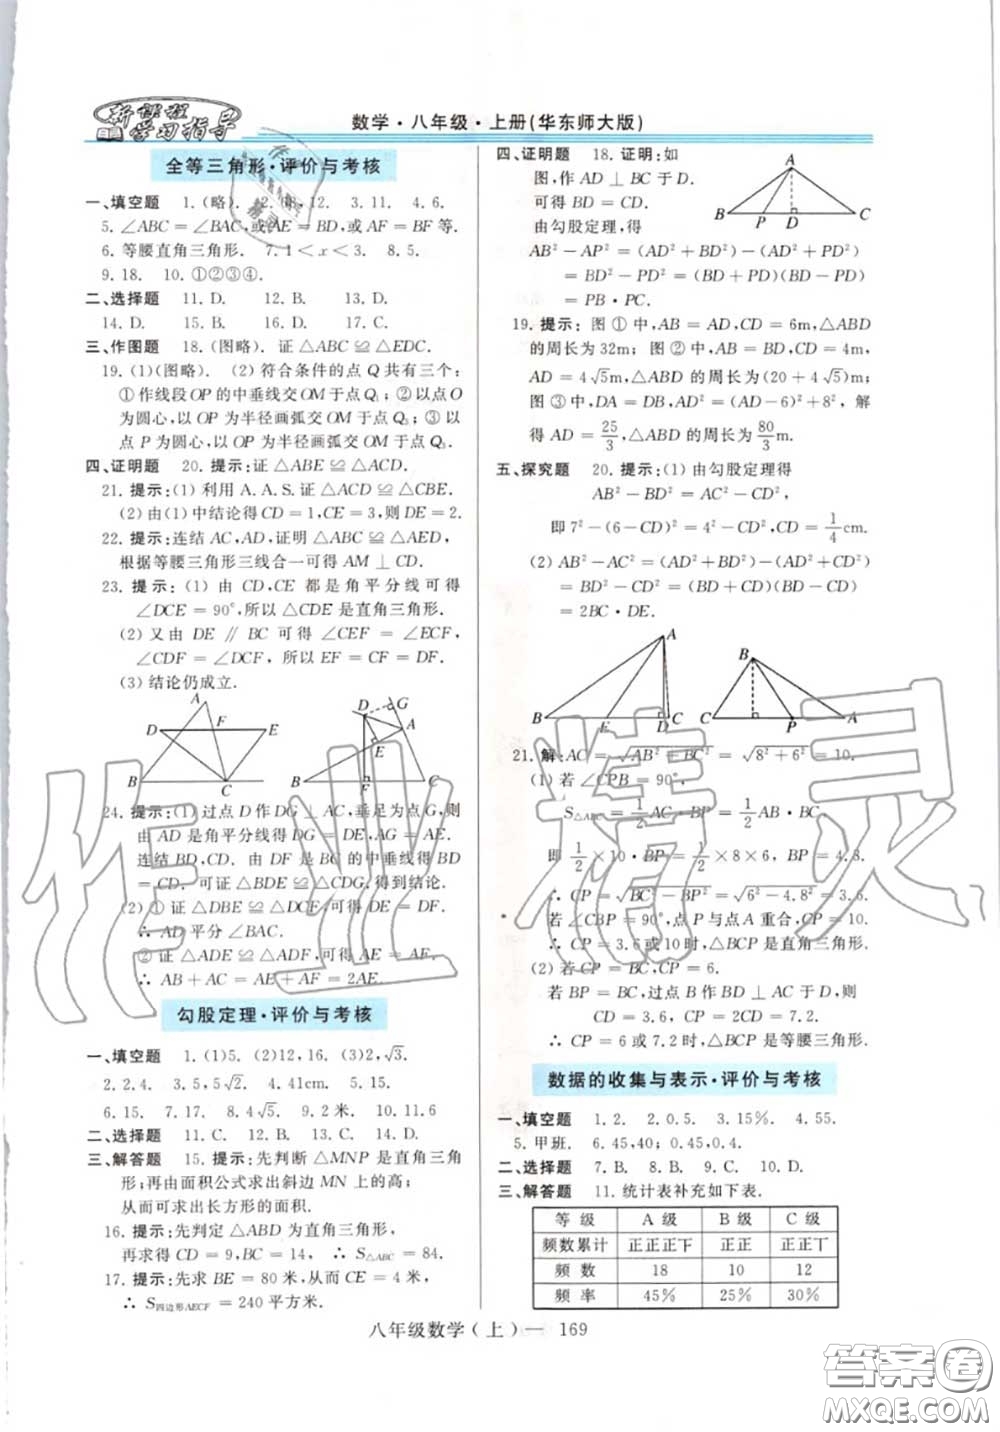 新课程
学习指导
数学·八年级·上册(华东师大版)
全等三角形·评价与考核
一、填空题 1.(略). 2. 12. 3.11. 4.6.
5.∠ABC=∠BAC,或AE=BD,或AF=BF等.
6.等腰直角三角形. 7.1<x<3. 8.5.
9.18. 10.①②③④.
二、选择题 11.D. 12.B. 13.D.
14.D. 15.B. 16.D. 17.C.
三、作图题 18.(图略). 证△ABC≌△EDC.
19.(1)(图略). (2)符合条件的点Q共有三个:
①作线段OP的中垂线交OM于点Q₁;②以点O
为圆心,以OP为半径画弧交OM于点Q₂;③以
点P为圆心,以OP为半径画弧交OM于点Q₃.
四、证明题 20.提示:证△ABE≌△ACD.
21.提示:(1)利用A.A.S.证△ACD≌△CBE.
(2)由(1)中结论得CD=1,CE=3,则DE=2.
22.提示:连结AC,AD,证明△ABC≌△AED,
根据等腰三角形三线合一可得AM⊥CD.
23.提示:(1)由CD,CE都是角平分线可得
∠DCE=90°,所以△CDE是直角三角形.
(2)又由DE∥BC可得∠CEF=∠ECF,
∠CDF=∠DCF,所以EF=CF=DF.
(3)结论仍成立.
A
D F E
B C
D G
A
E
B F C
24.提示:(1)过点D作DG⊥AC,垂足为点G,则
由AD是角平分线得DG=DE,AG=AE.
连结BD,CD.由DF是BC的中垂线得BD
=CD.可证△BDE≌△CDG,得到结论.
(2)①证△DBE≌△DCG,可得DE=DG,
∴AD平分∠BAC.
②证△ADE≌△ADG,可得AE=AG.
∴AB+AC=AE+AF=2AE.
勾股定理·评价与考核
一、填空题 1.(1)5. (2)12,16. (3)2,√3.
2.2,4. 3.5,5√2. 4.41cm. 5.15.
6.15. 7.17. 8.4√5. 9.2米. 10.11.6
二、选择题 11.C. 12.B. 13.D. 14.D.
三、解答题 15.提示:先判断△MNP是直角三角
形;再由面积公式求出斜边MN上的高;
从而可求出长方形的面积.
16.提示:先判定△ABD为直角三角形,
再求得CD=9,BC=14,∴S△ABC=84.
17.提示:先求BE=80米,从而CE=4米,
∴S四边形AECF=240平方米.
四、证明题 18.证明:如
图,作AD⊥BC于D.
可得BD=CD.
由勾股定理,得
A
B P D C
AB²-AP²=(AD²+BD²)-(AD²+PD²)
=BD²-PD²=(BD+PD)(BD-PD)
=PB·PC.
19.提示:图①中,AB=AD,CD=6m,△ABD
的周长为32m;图②中,AB=BD,CD=4m,
AD=4√5m,△ABD的周长为(20+4√5)m;
图③中,DA=DB,AD²=(AD-6)²+8²,解
得AD=25/3,△ABD的周长为80/3m.
五、探究题 20.提示:(1)由勾股定理得
AB²-BD²=AC²-CD²,
即7²-(6-CD)²=4²-CD²,CD=1/4cm.
(2)AB²-AC²=(AD²+BD²)-(AD²+CD²)
=BD²-CD²=(BD+CD)(BD-CD)
=2BC·DE.
A
B E D C
B
C P A
21.解:AC=√AB²+BC²=√8²+6²=10.
(1)若∠CPB=90°,
S△ABC=1/2AC·BP=1/2AB·BC.
即1/2×10·BP=1/2×8×6,BP=4.8.
∴CP=√BC²-BP²=√6²-4.8²=3.6.
若∠CBP=90°,点P与点A重合,CP=10.
∴CP=3.6或10时,△BCP是直角三角形.
(2)若CP=BC,CP=6.
若BC=BP,过点B作BD⊥AC于D,则
CD=3.6,CP=2CD=7.2.
∴CP=6或7.2时,△BCP是等腰三角形.
数据的收集与表示·评价与考核
一、填空题 1.2. 2.0.5. 3.15%. 4.55.
5.甲班. 6.45,40;0.45,0.4.
二、选择题 7.B. 8.B. 9.C. 10.D.
三、解答题 11.统计表补充如下表.
等级 A级 B级 C级
频数累计 正正正下 正正 正正丅
频数 18 10 12
频率 45% 25% 30%
八年级数学(上)— 169
作业精灵
答案卷
MXQE.COM